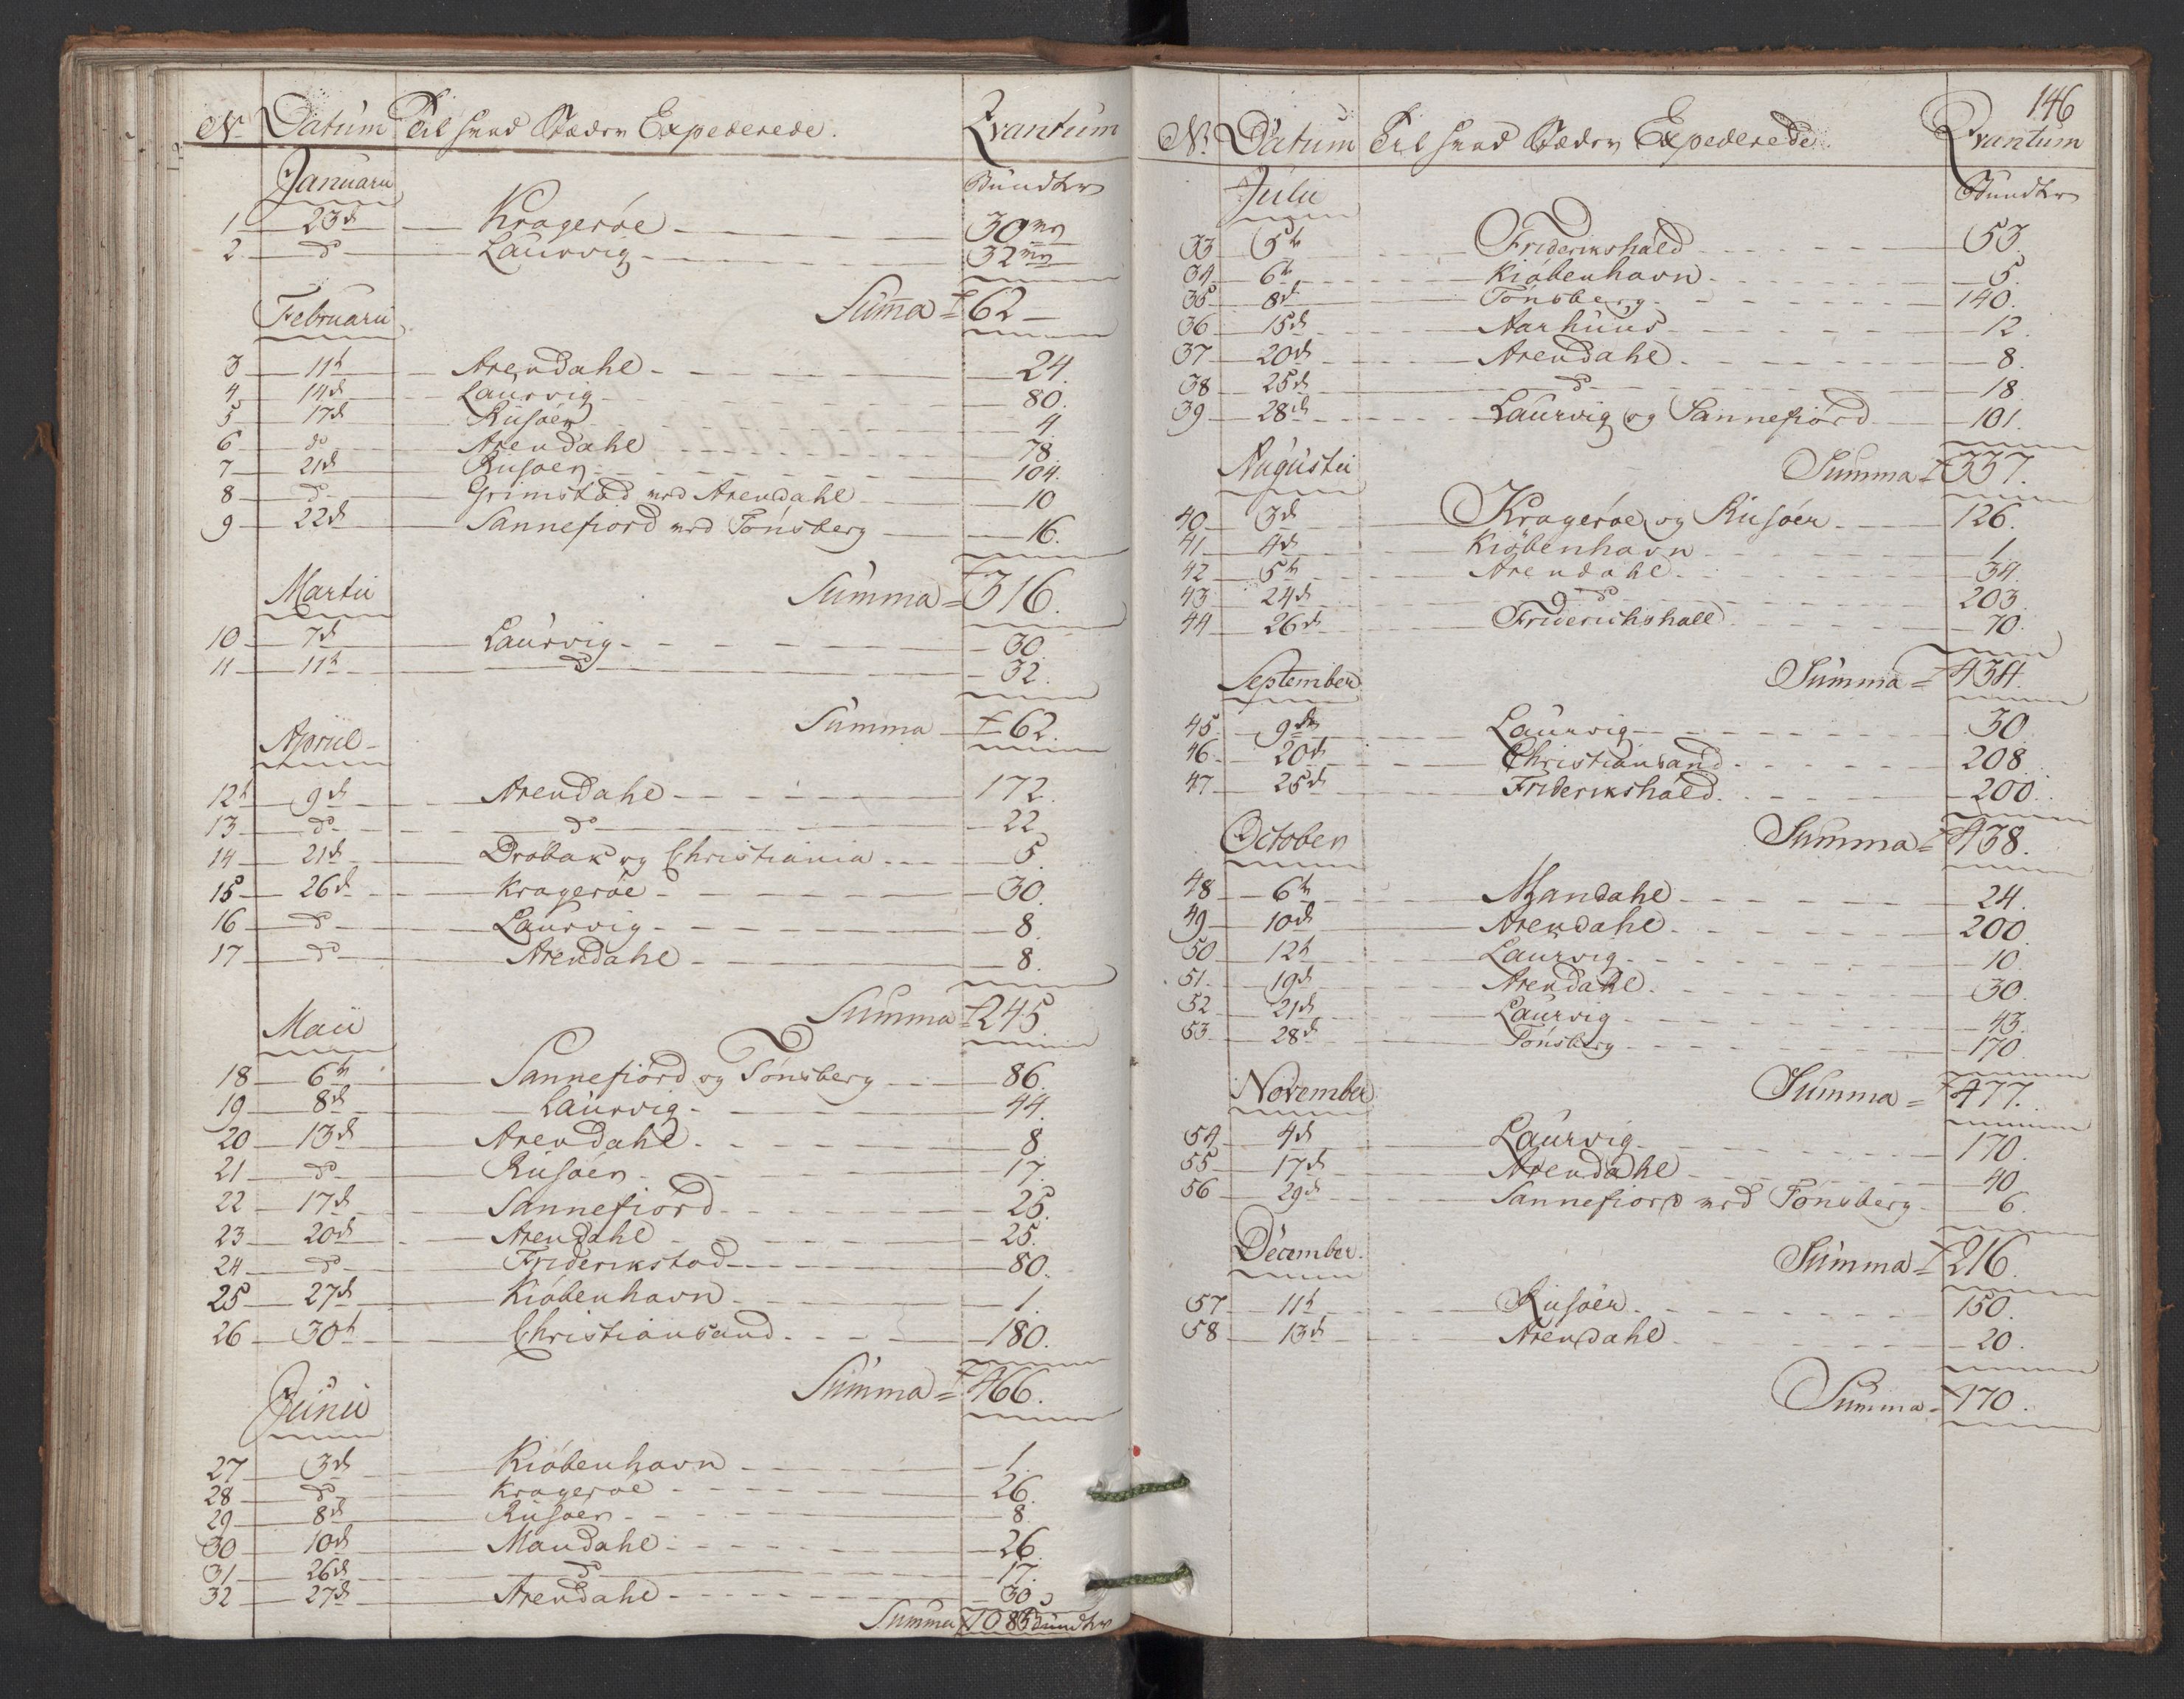 No Datum Til hvad Stæder Expederede. Qvantum
Januarii Bundter
1 23d Kragerøe 30
2 do Laurvig 32
Februarii Summa = 62
3 11t Arendahl 24.
4 14d Laurvig 80.
5 17d Riisøer 4
6 do Arendahl 78.
7 21d Riisøer 104.
8 do Grimstad ved Arendahl 10
9 22d Sannefiord ved Tønsberg 16.
Martii Summa = 316.
10 7d Laurvig 30
11 11t do 32.
April Summa 62.
12t 9d Arendahl 172.
13 do do 22
14 21d Drøbak og Christiania 5.
15 26d Kragerøe 30.
16 do Laurvig 8.
17 do Arendahl 8.
Maii Summa = 245.
18 6t Sannefiord og Tønsberg 86.
19 8d Laurvig 44.
20 13d Arendahl 8
21 do Riisøer 17.
22 17d Sannefiord 25.
23 20d Arendahl 25.
24 do Friderikstad 80.
25 27d Kiøbenhavn 1.
26 30t Christiansand 180.
Summa = 466.
Junii
27 3d Kiøbenhavn 1.
28 do Kragerøe 26.
29 8d Riisøer 8.
30 10d Mandahl 26.
31 26d do 17.
32 27d Arendahl 30
Summa 108 Bundter
146
No Datum Til hvad Stæder Expederede Qvantum
Julii Bundter
33 5t Friderikshald 53.
34 6t Kiøbenhavn 5.
35 8d Tønsberg 140.
36 15d Aarhuus 12.
37 20d Arendahl 8.
38 25d do 18.
39 28d Laurvig og Sannefiord 101.
Augustii Summa = 337.
40 3d Kragerøe og Riisøer 126.
41 4d Kiøbenhavn 1.
42 5t Arendahl 34.
43 24d do 203.
44 26d Friderichshall 70.
September Summa = 434.
45. 9de Laurvig 30
46 20d Christiansand 208
47 25d Friderikshald 200.
October Summa = 438.
48 6t Mandahl 24.
49 10d Arendahl 200
50 12t Laurvig 10
51. 19d Arendahl 30.
52 21d Laurvig 43.
53 28d Tønsberg 170
November Summa = 477.
54 4d Laurvig 170.
55 17d Arendahl 40
56 29d Sannefiord ved Tønsberg 6.
December. Summa = 216
57 11t Riisøer 150.
58 13d Arendahl 20.
Summa = 170.